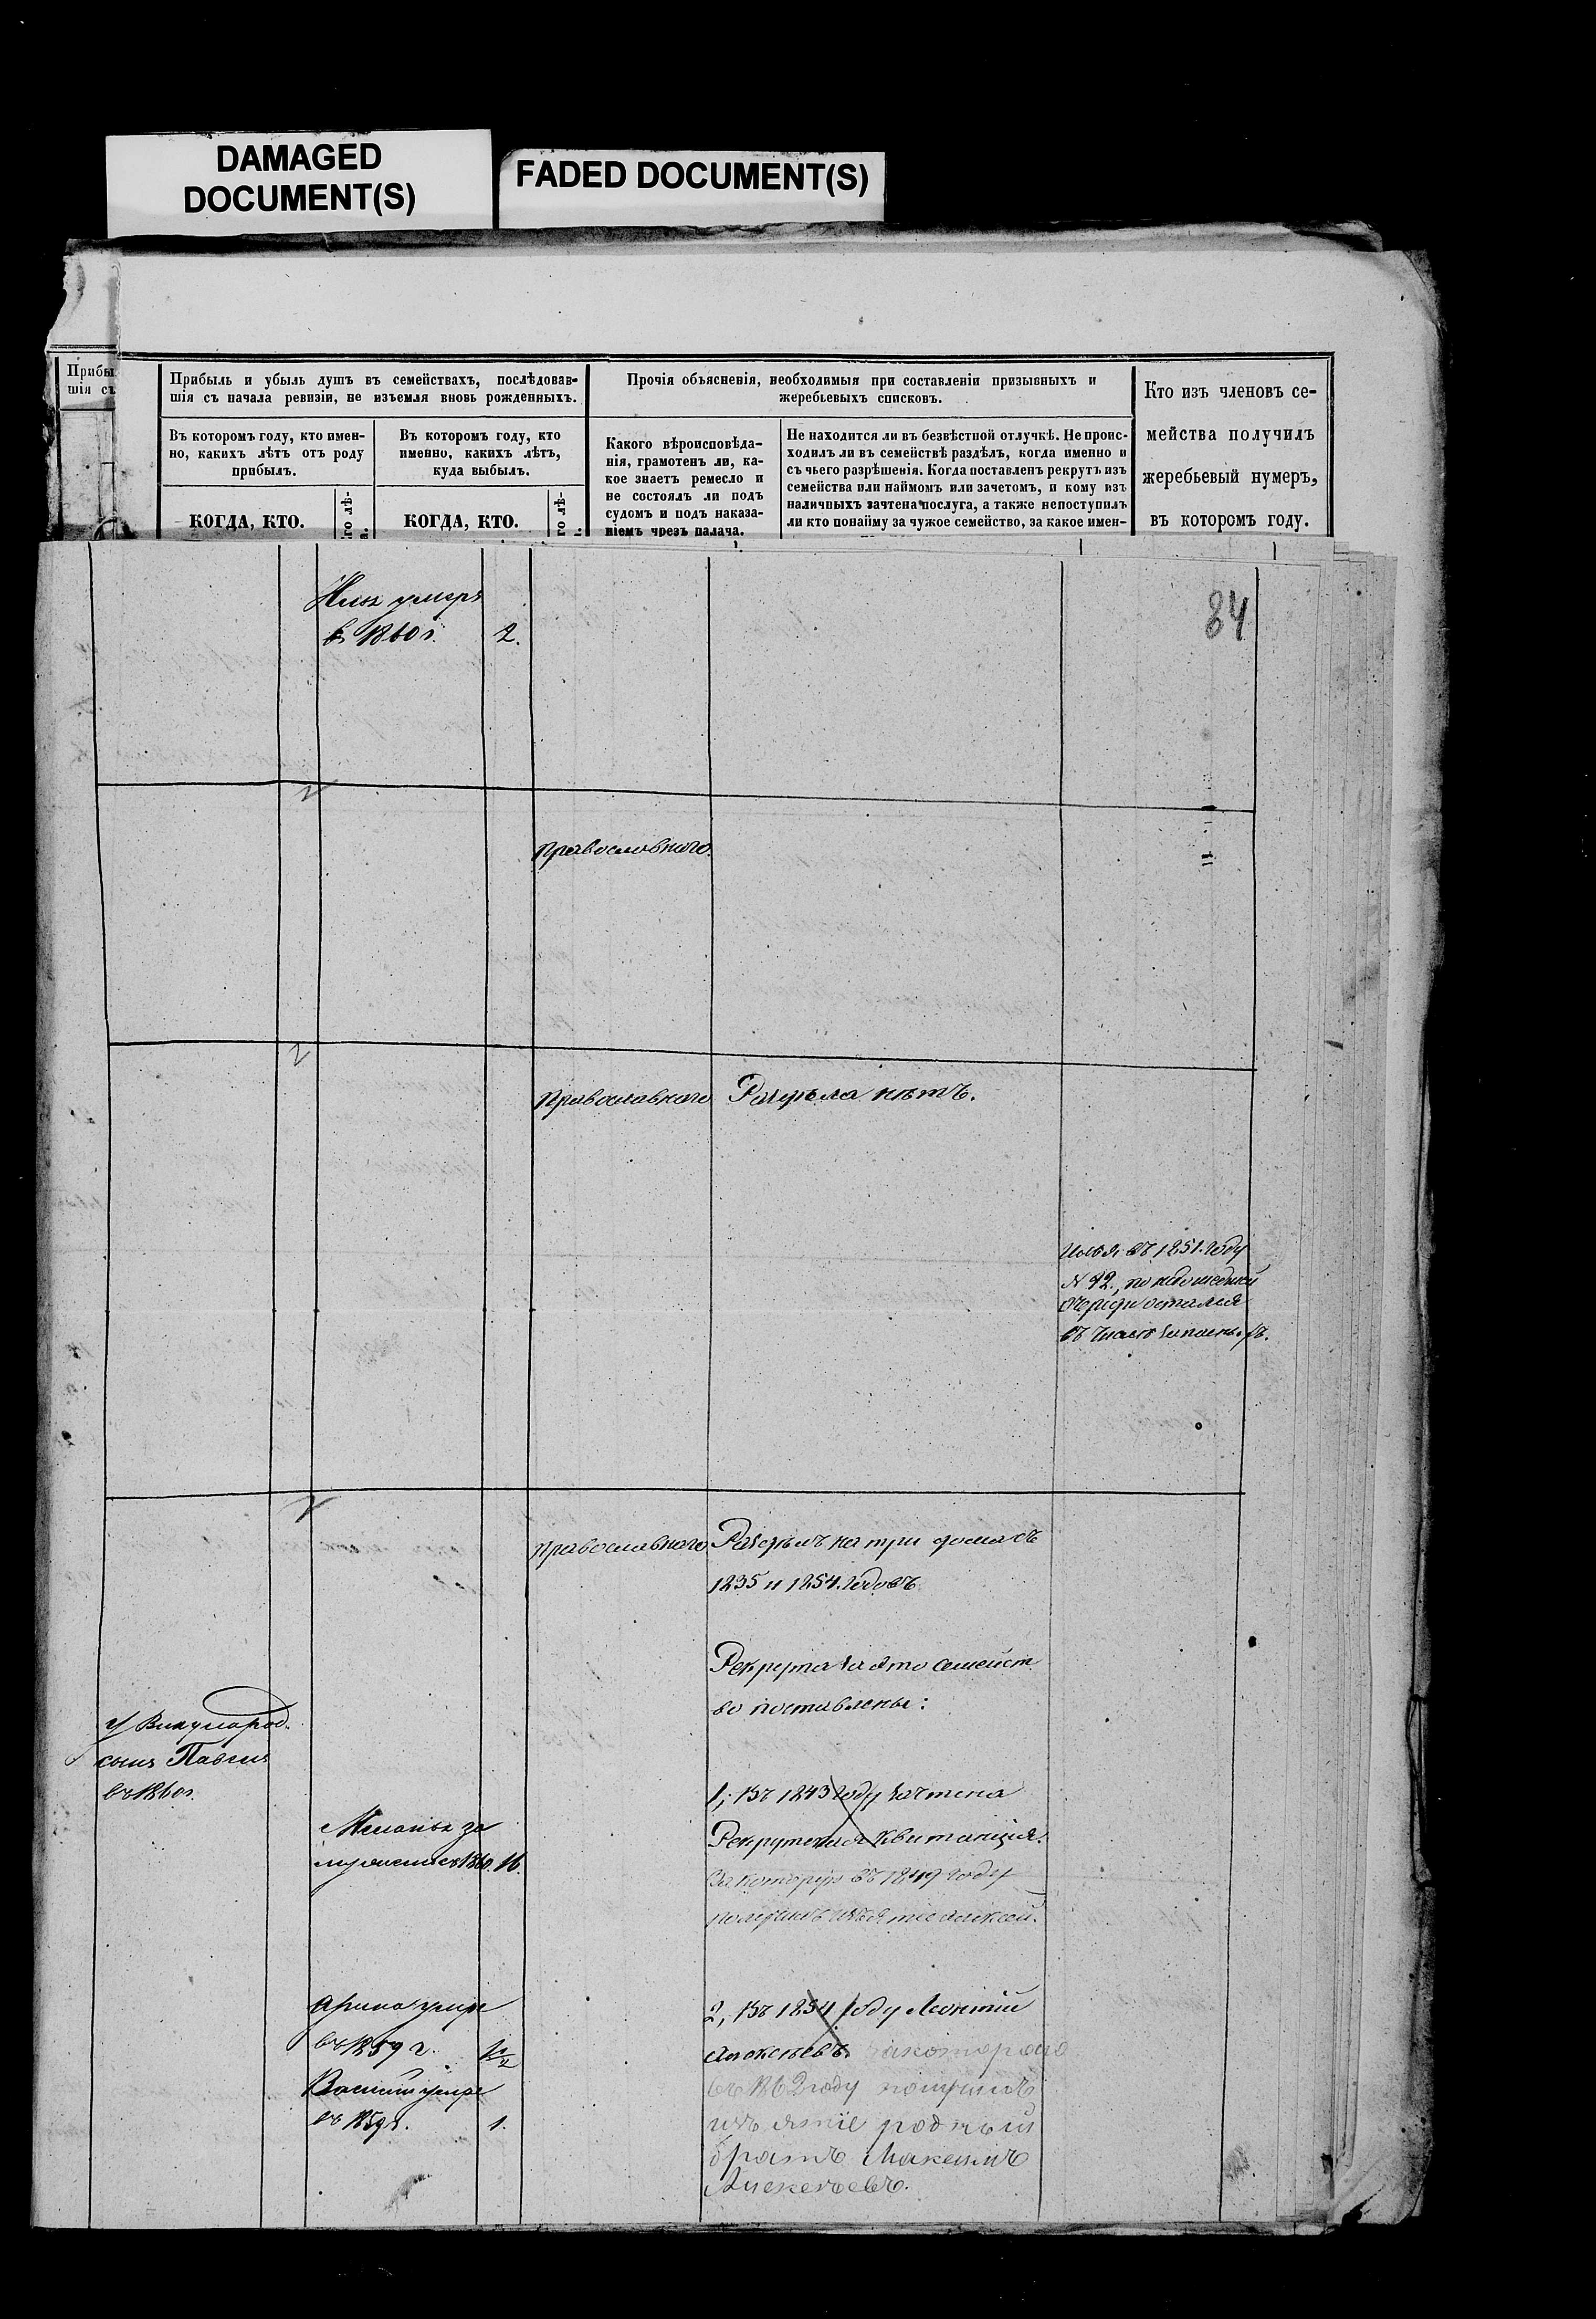 DAMAGED
DOCUMENT(S)
FADED DOCUMENT(S)
Прибы
шія съ
Прибыль и убыль душъ въ семействахъ, послѣдовав-
шія съ начала ревизіи, не изъемля вновь рожденныхъ.
Въ которомъ году, кто имен-
но, какихъ лѣтъ отъ роду
прибылъ.
КОГДА, КТО.
го лѣ-
Въ которомъ году, кто
именно, какихъ лѣтъ,
куда выбылъ.
КОГДА, КТО.
го лѣ-
Прочія объясненія, необходимыя при составленіи призывныхъ и
жеребьевыхъ списковъ.
Какого вѣроисповѣда-
нія, грамотенъ ли, ка-
кое знаетъ ремесло и
не состоялъ ли подъ
судомъ и подъ наказа-
ніемъ чрезъ палача.
Не находится ли въ безвѣстной отлучкѣ. Не проис-
ходилъ ли въ семействѣ раздѣлъ, когда именно и
съ чьего разрѣшенія. Когда поставленъ рекрутъ изъ
семейства или наймомъ или зачетомъ, и кому изъ
наличныхъ зачтена послуга, а также непоступилъ
ли кто понайму за чужое семейство, за какое имен-
Кто изъ членовъ се-
мейства получилъ
жеребьевый нумеръ,
въ которомъ году.
84
умеръ
въ 1860 г. 2.
православнаго.
православнаго Раздѣла нѣтъ.
Илья въ 1851. году
N 12, по недошедшей
очереди остался
въ числѣ
православнаго Раздѣлъ на три дома съ
1835 и 1854. годовъ
Рекрута за это семейст
во поставлены:
сынъ Павелъ
въ 1860 г.
1, Въ 1843 году зачтена
Рекрутская квитанція.
за которую въ 1849 году
Меланья за
16.
2, Въ 1854 году Леонтій
Алексѣевъ. за котораго
въ 1862 году
родный
братъ Максимъ
Алексѣевъ.
Арина умре
въ 1859 г.
Василій умре
въ 1859 г. 1.